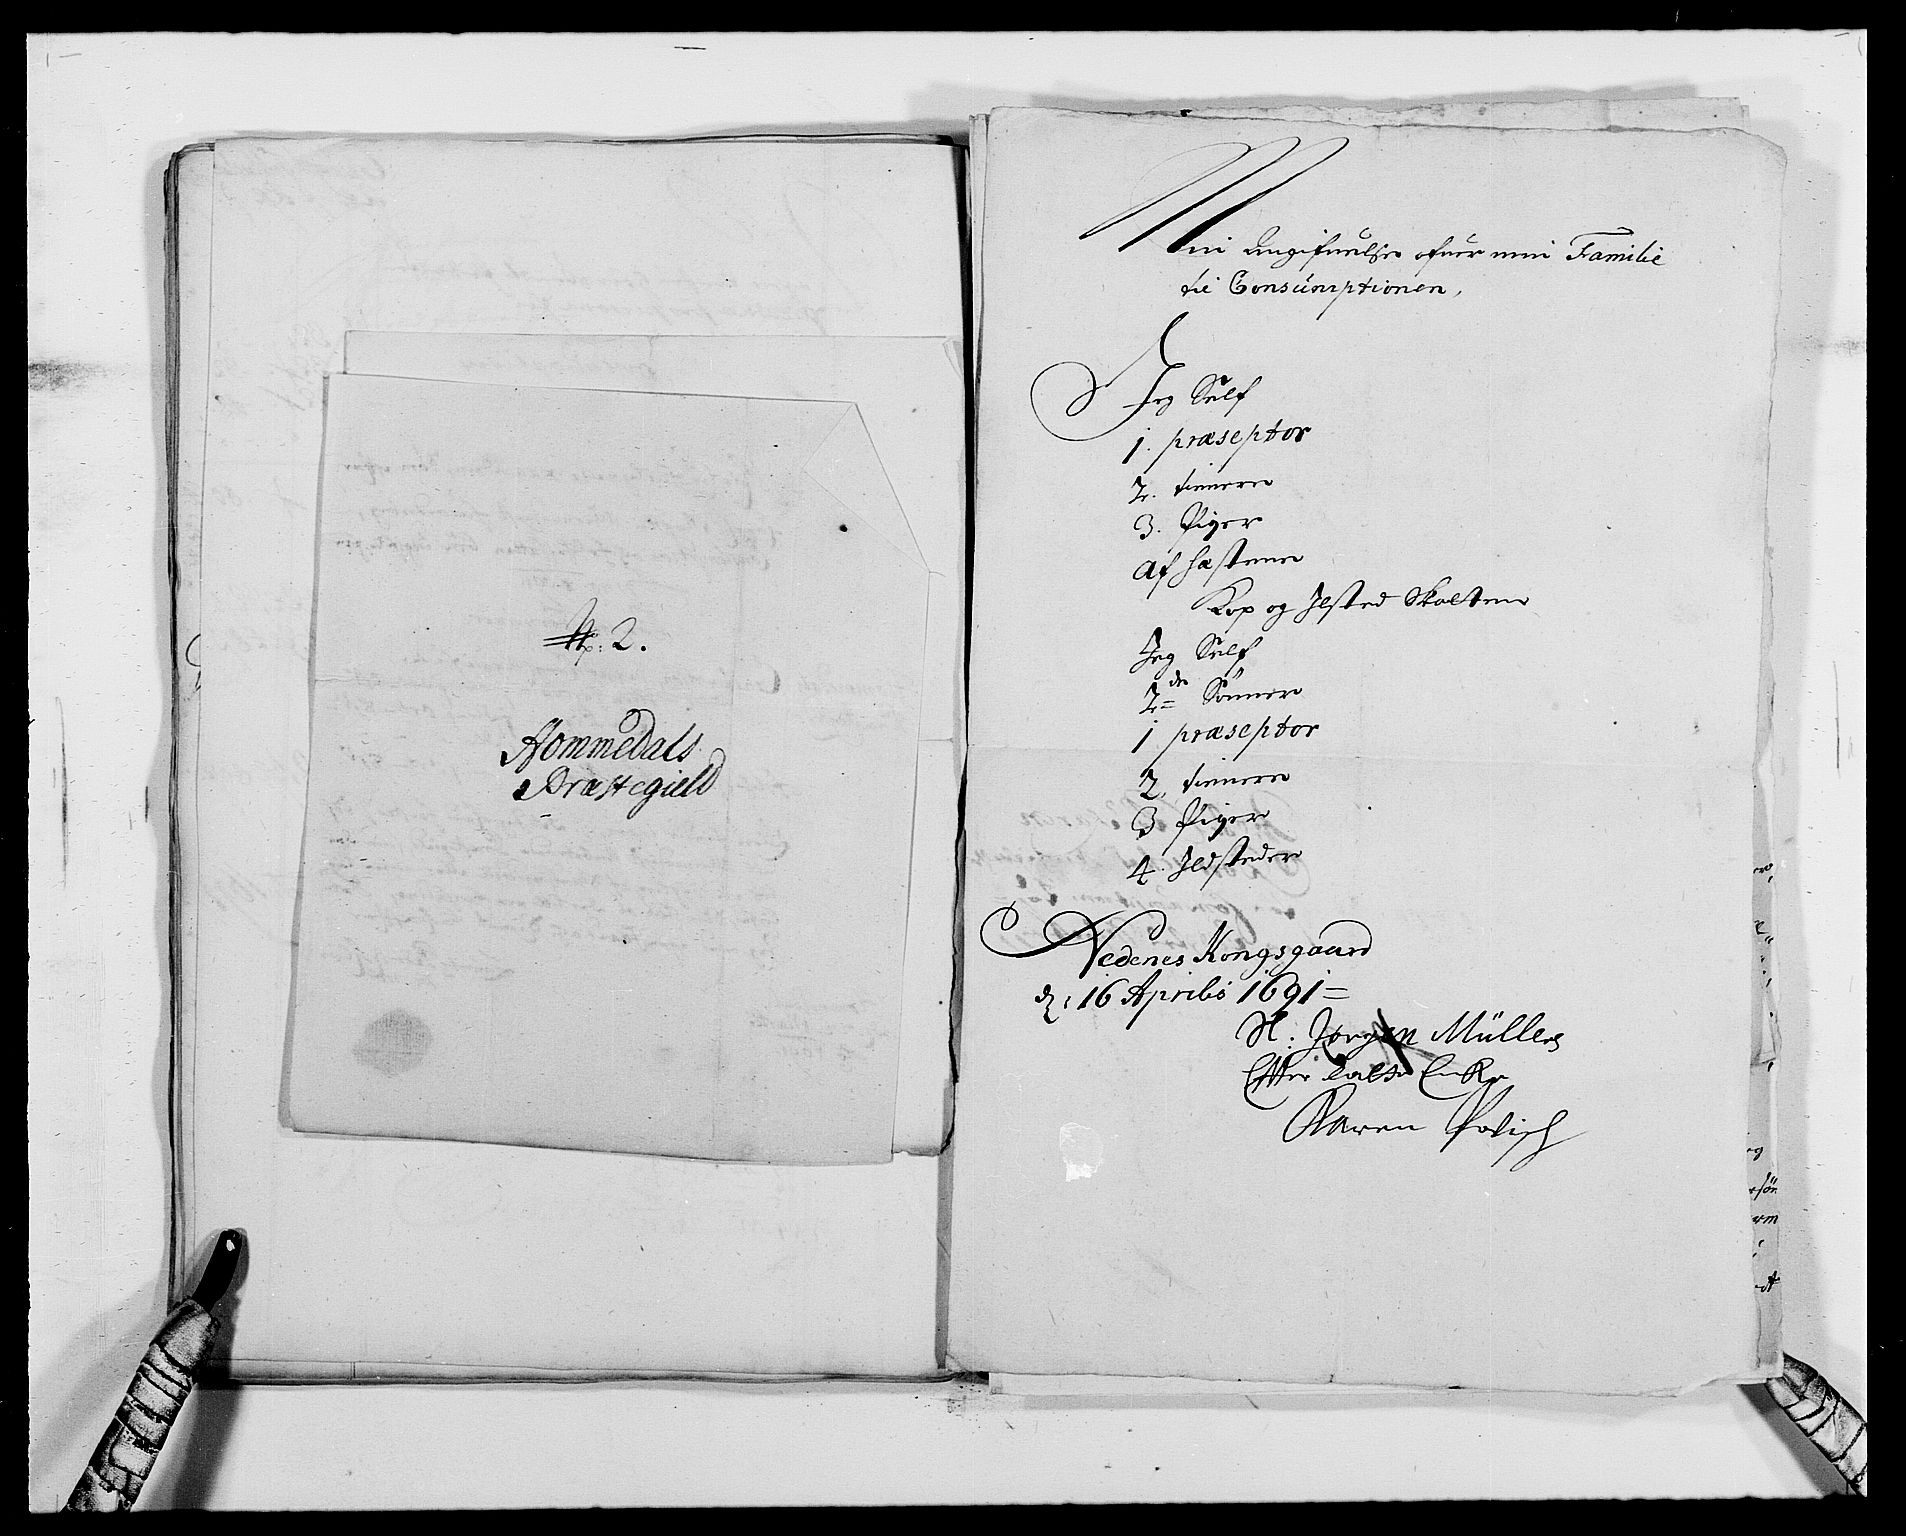 Np: 2.
Hommedals
Præstegield
Min Angifvelse ofver min Familie
til Consumptionen,
Jeg Self
1. præseptor
2. tienere
3. Piger
Af hæstene
Kop og Ilsted Skatten
Jeg Self
2de Sönner
1 præseptor
2, tienere
3 Piger
4 Ildsteder
Nedenes Kongsgaard
d: 16 Aprilis 1691=
Sl: Jørgen Müllers
Efter Latte Enke
Karen